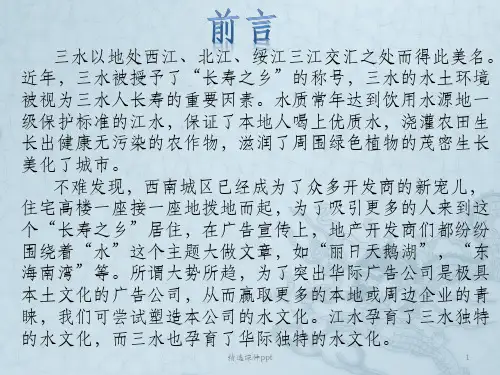 前言
三水以地处西江、北江、绥江三江交汇之处而得此美名。
近年，三水被授予了“长寿之乡”的称号，三水的水土环境
被视为三水人长寿的重要因素。水质常年达到饮用水源地一
级保护标准的江水，保证了本地人喝上优质水，浇灌农田生
长出健康无污染的农作物，滋润了周围绿色植物的茂密生长
美化了城市。
不难发现，西南城区已经成为了众多开发商的新宠儿，
住宅高楼一座接一座地拨地而起，为了吸引更多的人来到这
个“长寿之乡”居住，在广告宣传上，地产开发商们都纷纷
围绕着“水”这个主题大做文章，如“丽日天鹅湖”，“东
海南湾”等。所谓大势所趋，为了突出华际广告公司是极具
本土文化的广告公司，从而赢取更多的本地或周边企业的青
睐，我们可尝试塑造本公司的水文化。江水孕育了三水独特
的水文化，而三水也孕育了华际独特的水文化。
精选课件ppt
1